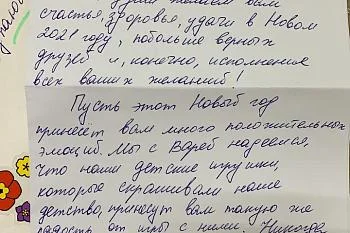 желаем вам
счастья, здоровья, удачи в Новом
2021 году, побольше верных
друзей и, конечно, исполнения
всех ваших желаний!
Пусть этот Новый год
принесёт вам много положительных
эмоций. Мы с Варей надеемся,
что наши детские игрушки,
которые скрашивали наше
детство, принесут вам такую же
радость от игры с ними! Никогда